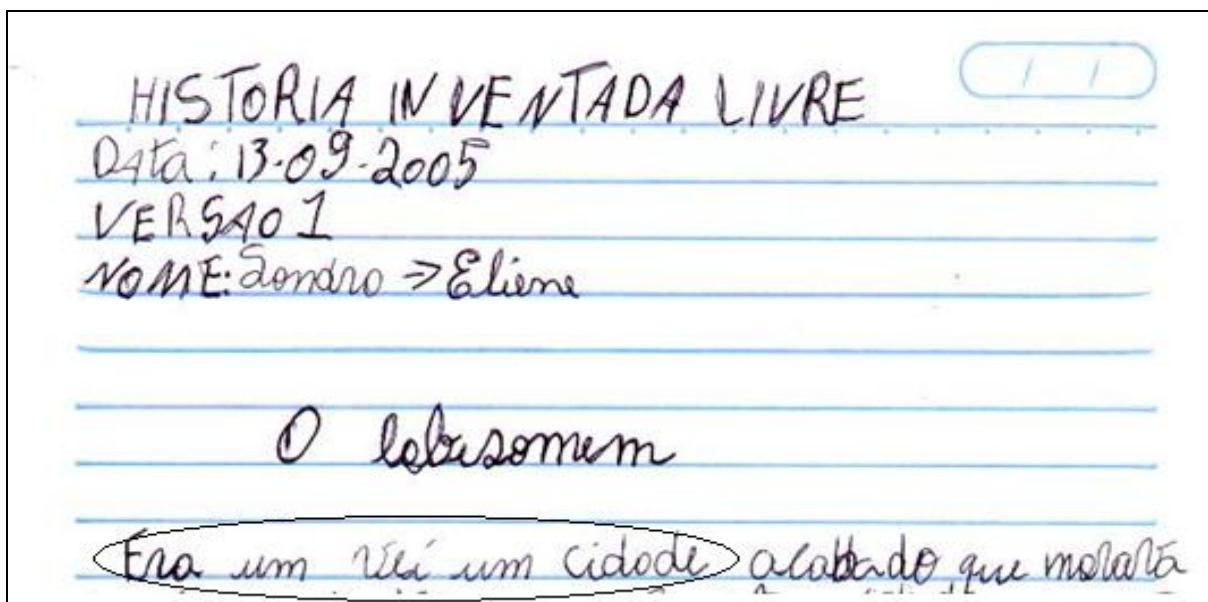 HISTORIA INVENTADA LIVRE
Data: 13-09-2005
VERSAO 1
NOME: Sandro => Eliene
O lobisomem
Era um vei um cidade acabado que morava